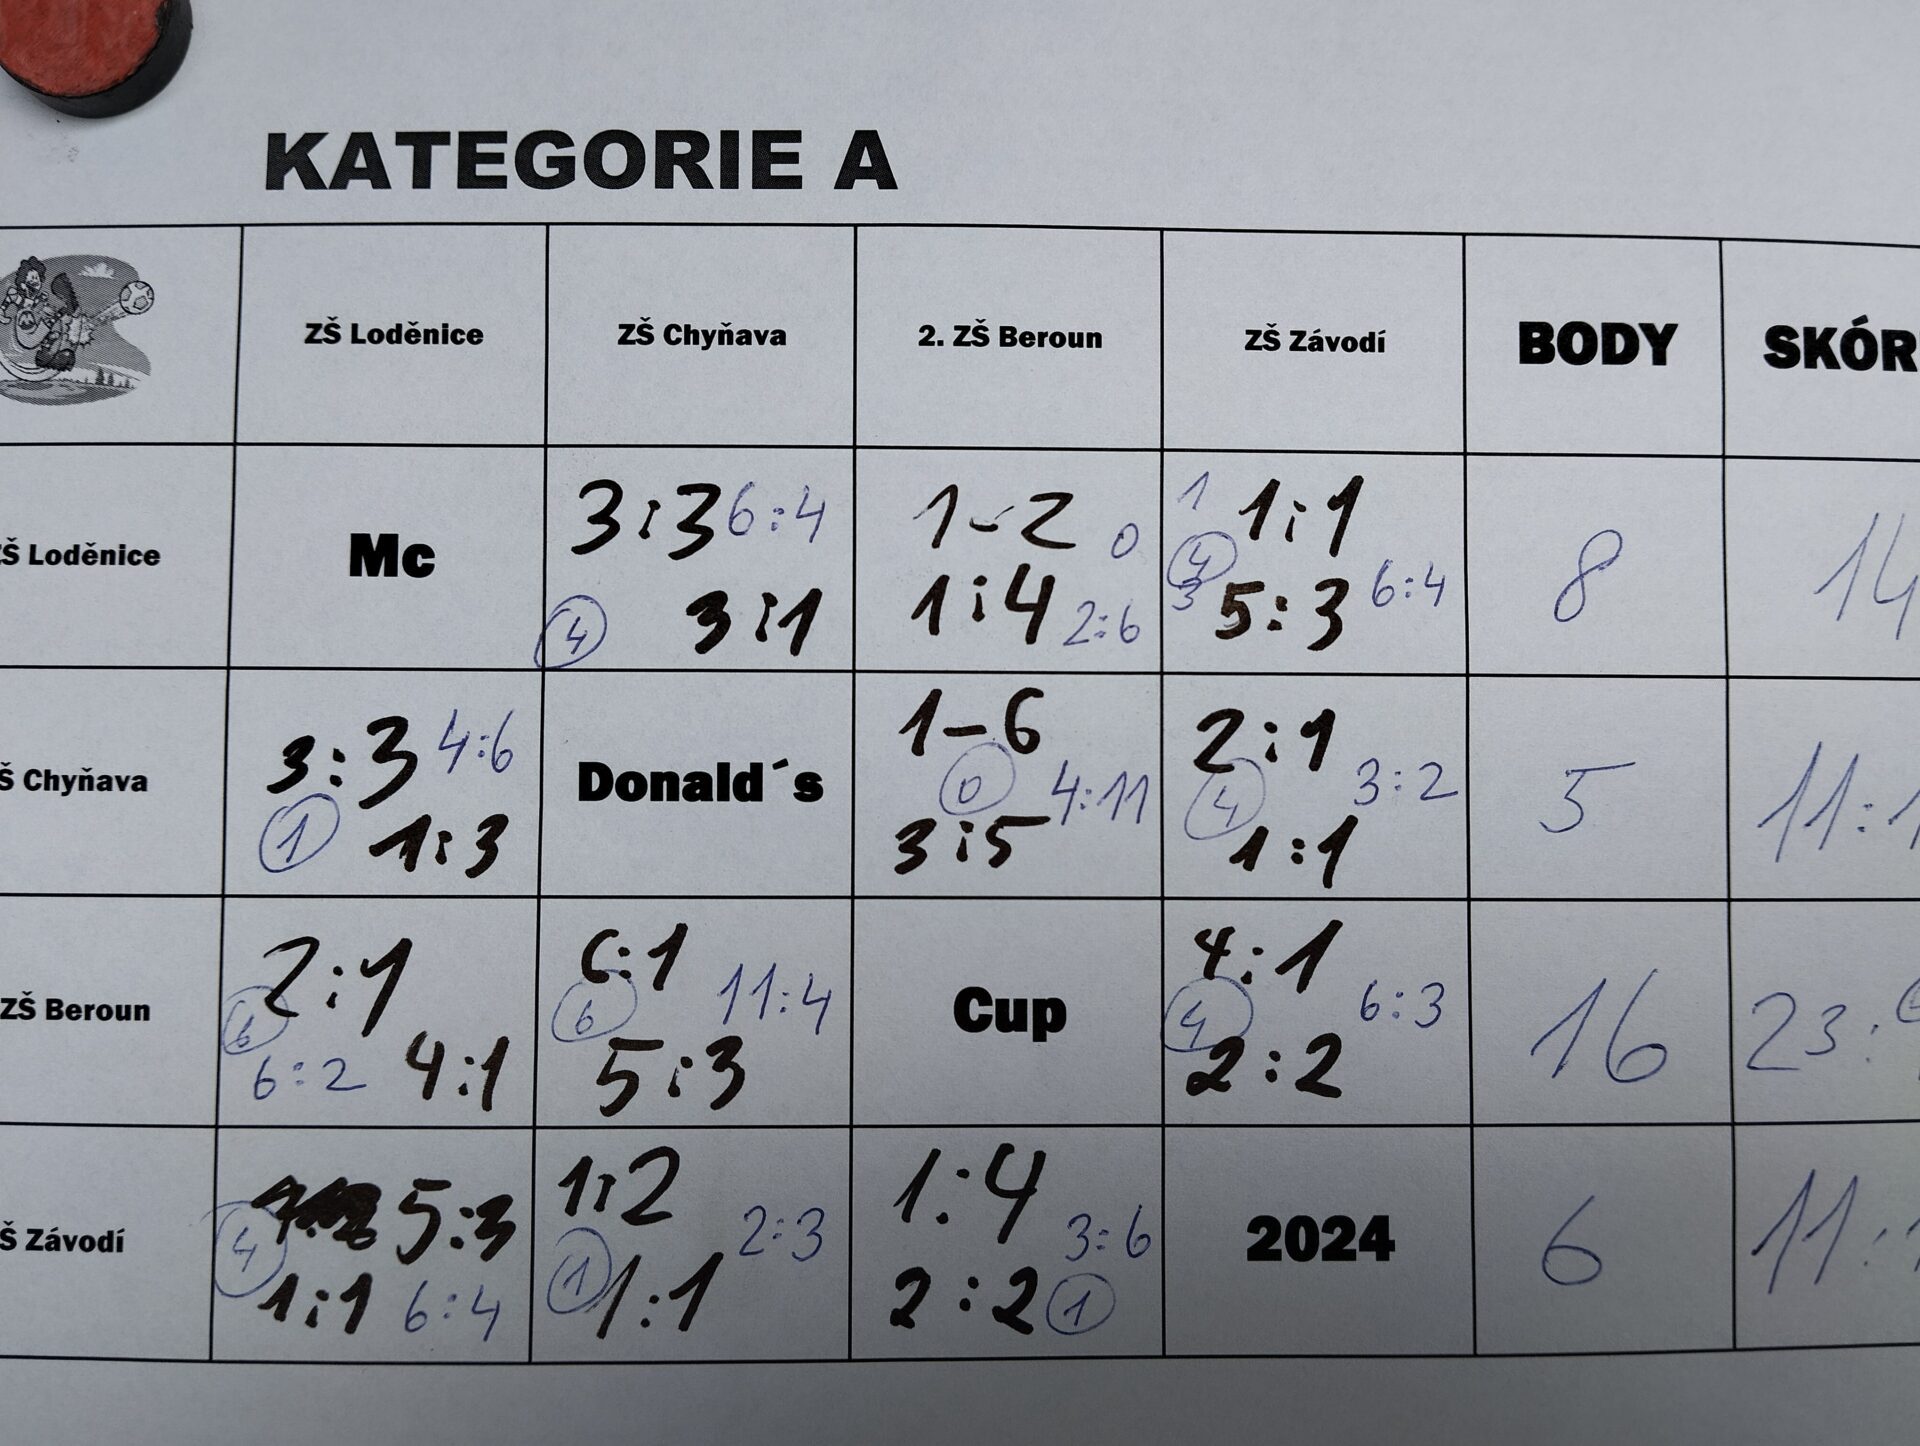 KATEGORIE A
ZŠ Loděnice ZŠ Chyňava 2. ZŠ Beroun ZŠ Závodí BODY SKÓR
ZŠ Loděnice Mc 3:3 6:4 1-2 0 1 1:1 8 14
4 3:1 1:4 2:6 4 3 5:3 6:4
Š Chyňava 3:3 4:6 Donald´s 1-6 2:1 5 11:1
1 1:3 0 4:11 4 3:2
3:5 1:1
ZŠ Beroun 2:1 6:1 Cup 4:1 16 23:
6 6 11:4 4 6:3
6:2 4:1 5:3 2:2
Š Závodí 5:3 1:2 1:4 2024 6 11:
4 2:3 3:6
1:1 6:4 1 1:1 2:2 1